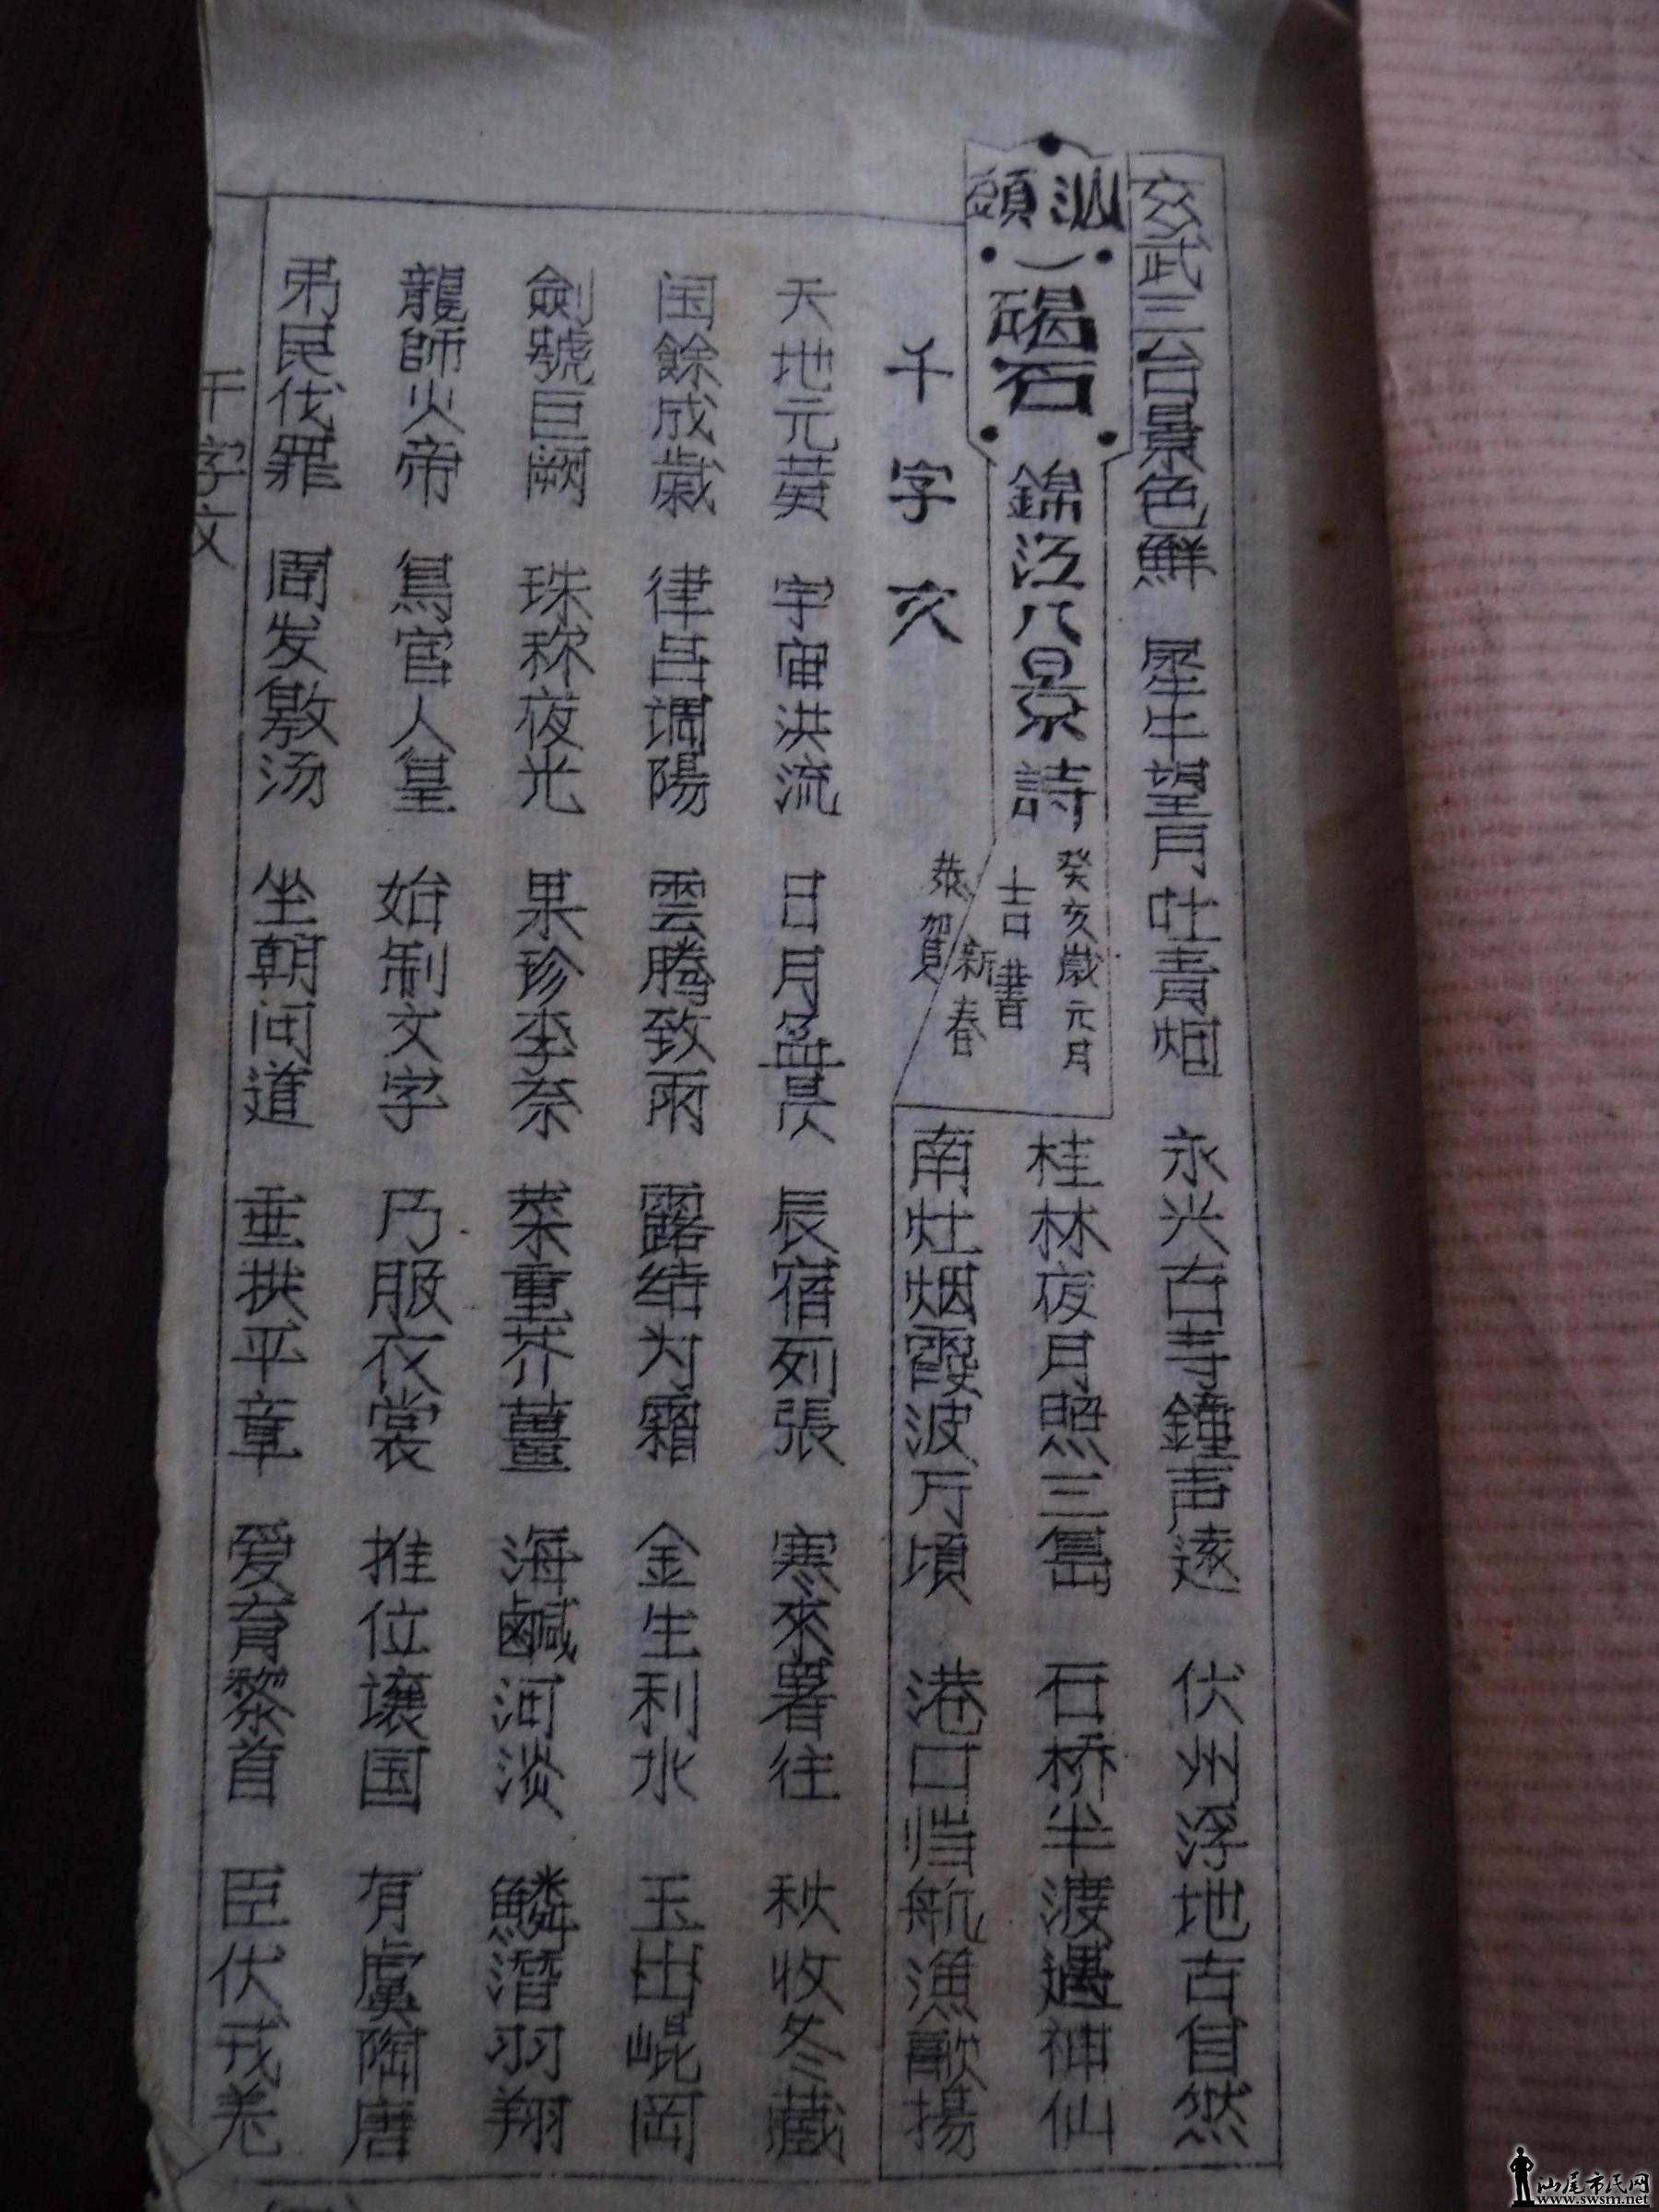 玄武三台景色鮮 犀牛望月吐青烟 永兴古寺鐘声遠 伏州浮地古自然
汕頭
(碣石
錦江八景詩
癸亥歲元月
吉書
恭賀
新春
桂林夜月照三島 石桥半渡遇神仙
南灶烟霞波万頃 港口归航漁歌揚
千字文
天地元黄 宇宙洪流 日月盈昃 辰宿列張 寒來暑往 秋收冬藏
闰餘成歲 律吕调陽 雲腾致雨 露结为霜 金生利水 玉出崐岡
劍號巨阙 珠称夜光 果珍李奈 菜重芥薑 海鹹河淡 鱗潛羽翔
龍師火帝 鳥官人皇 始制文字 乃服衣裳 推位讓国 有虞陶唐
弔民伐罪 周发殷汤 坐朝问道 垂拱平章 爱育黎首 臣伏戎羌
千字文
汕尾市民网
www.swsm.net